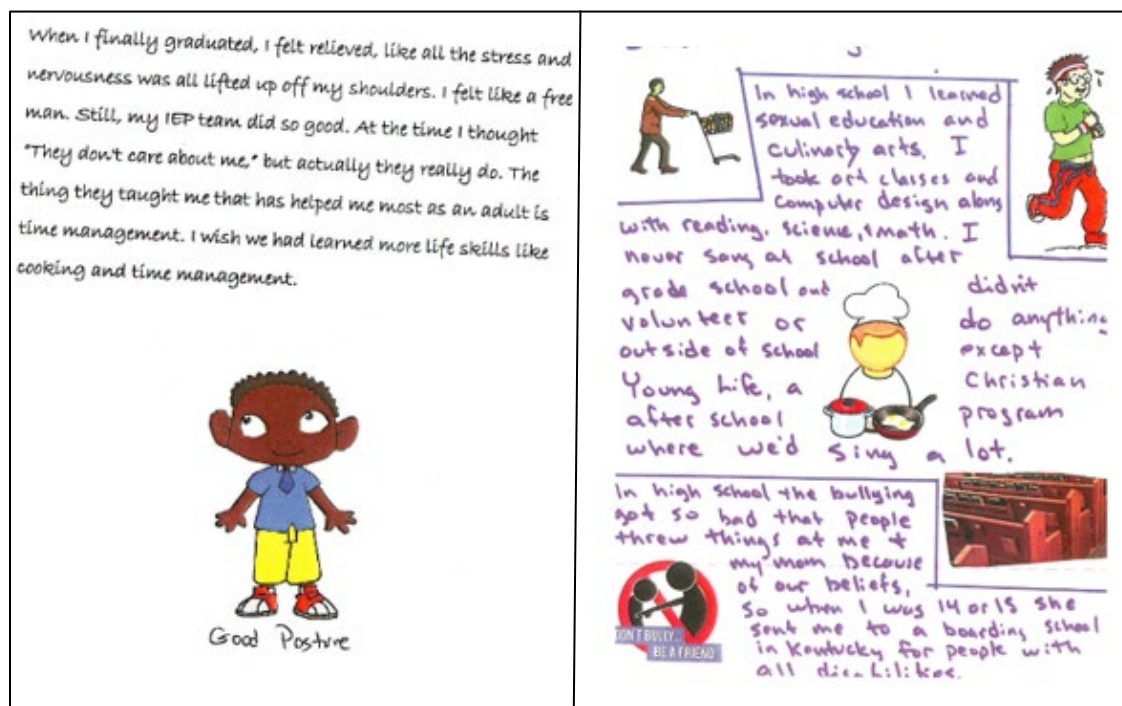 When I finally graduated, I felt relieved, like all the stress and
nervousness was all lifted up off my shoulders. I felt like a free
man. Still, my IEP team did so good. At the time I thought
"They don't care about me," but actually they really do. The
thing they taught me that has helped me most as an adult is
time management. I wish we had learned more life skills like
cooking and time management.
Good Posture
In high school I learned
sexual education and
culinary arts. I
took art classes and
computer design along
with reading, science, + math. I
never sang at school after
grade school and didn't
volunteer or do anything
outside of school except
Young Life, a Christian
after school program
where we'd sing a lot.
In high school the bullying
got so bad that people
threw things at me +
my mom because
of our beliefs,
so when I was 14 or 15 she
sent me to a boarding school
in Kentucky for people with
all disabilities.
DON'T BULLY...
BE A FRIEND